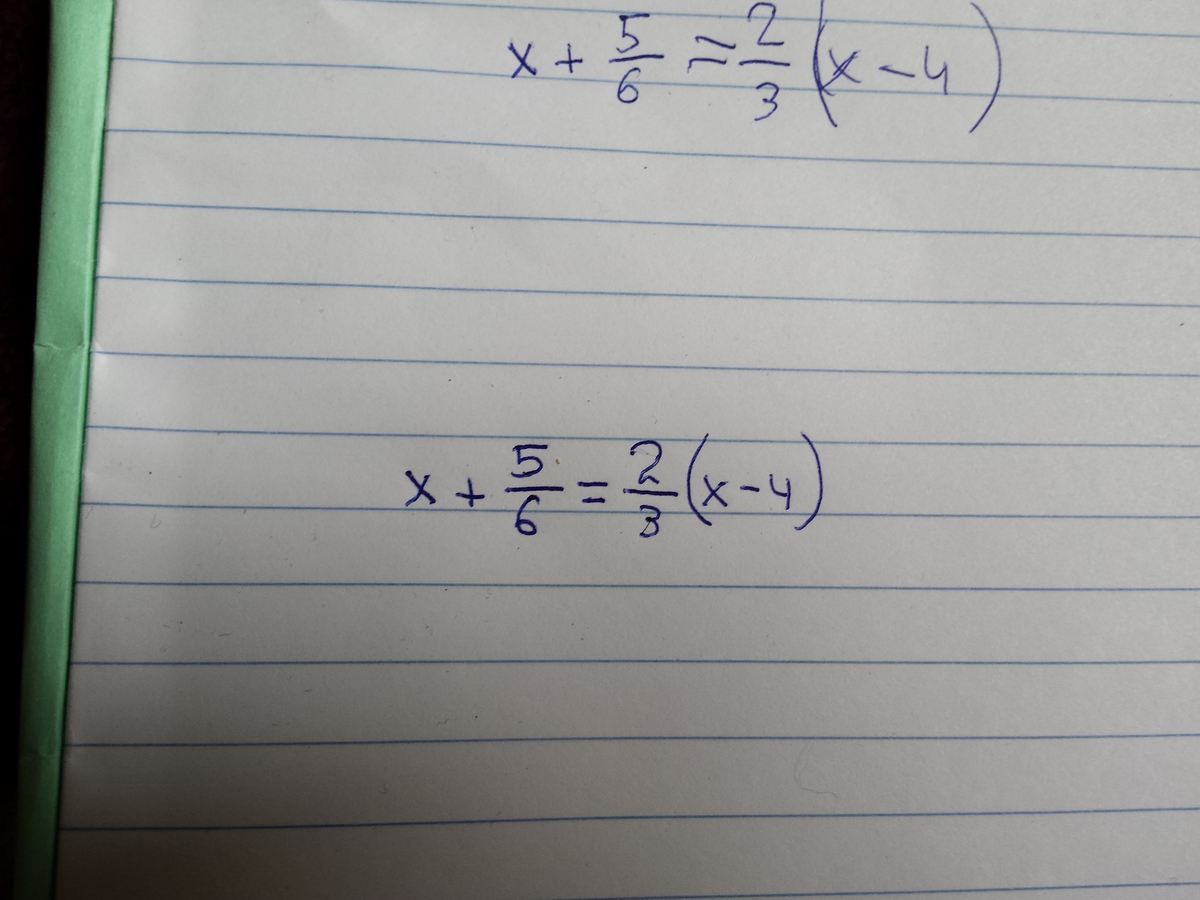 x + 5/6 = 2/3 (x - 4)
x + 5/6 = 2/3 (x - 4)